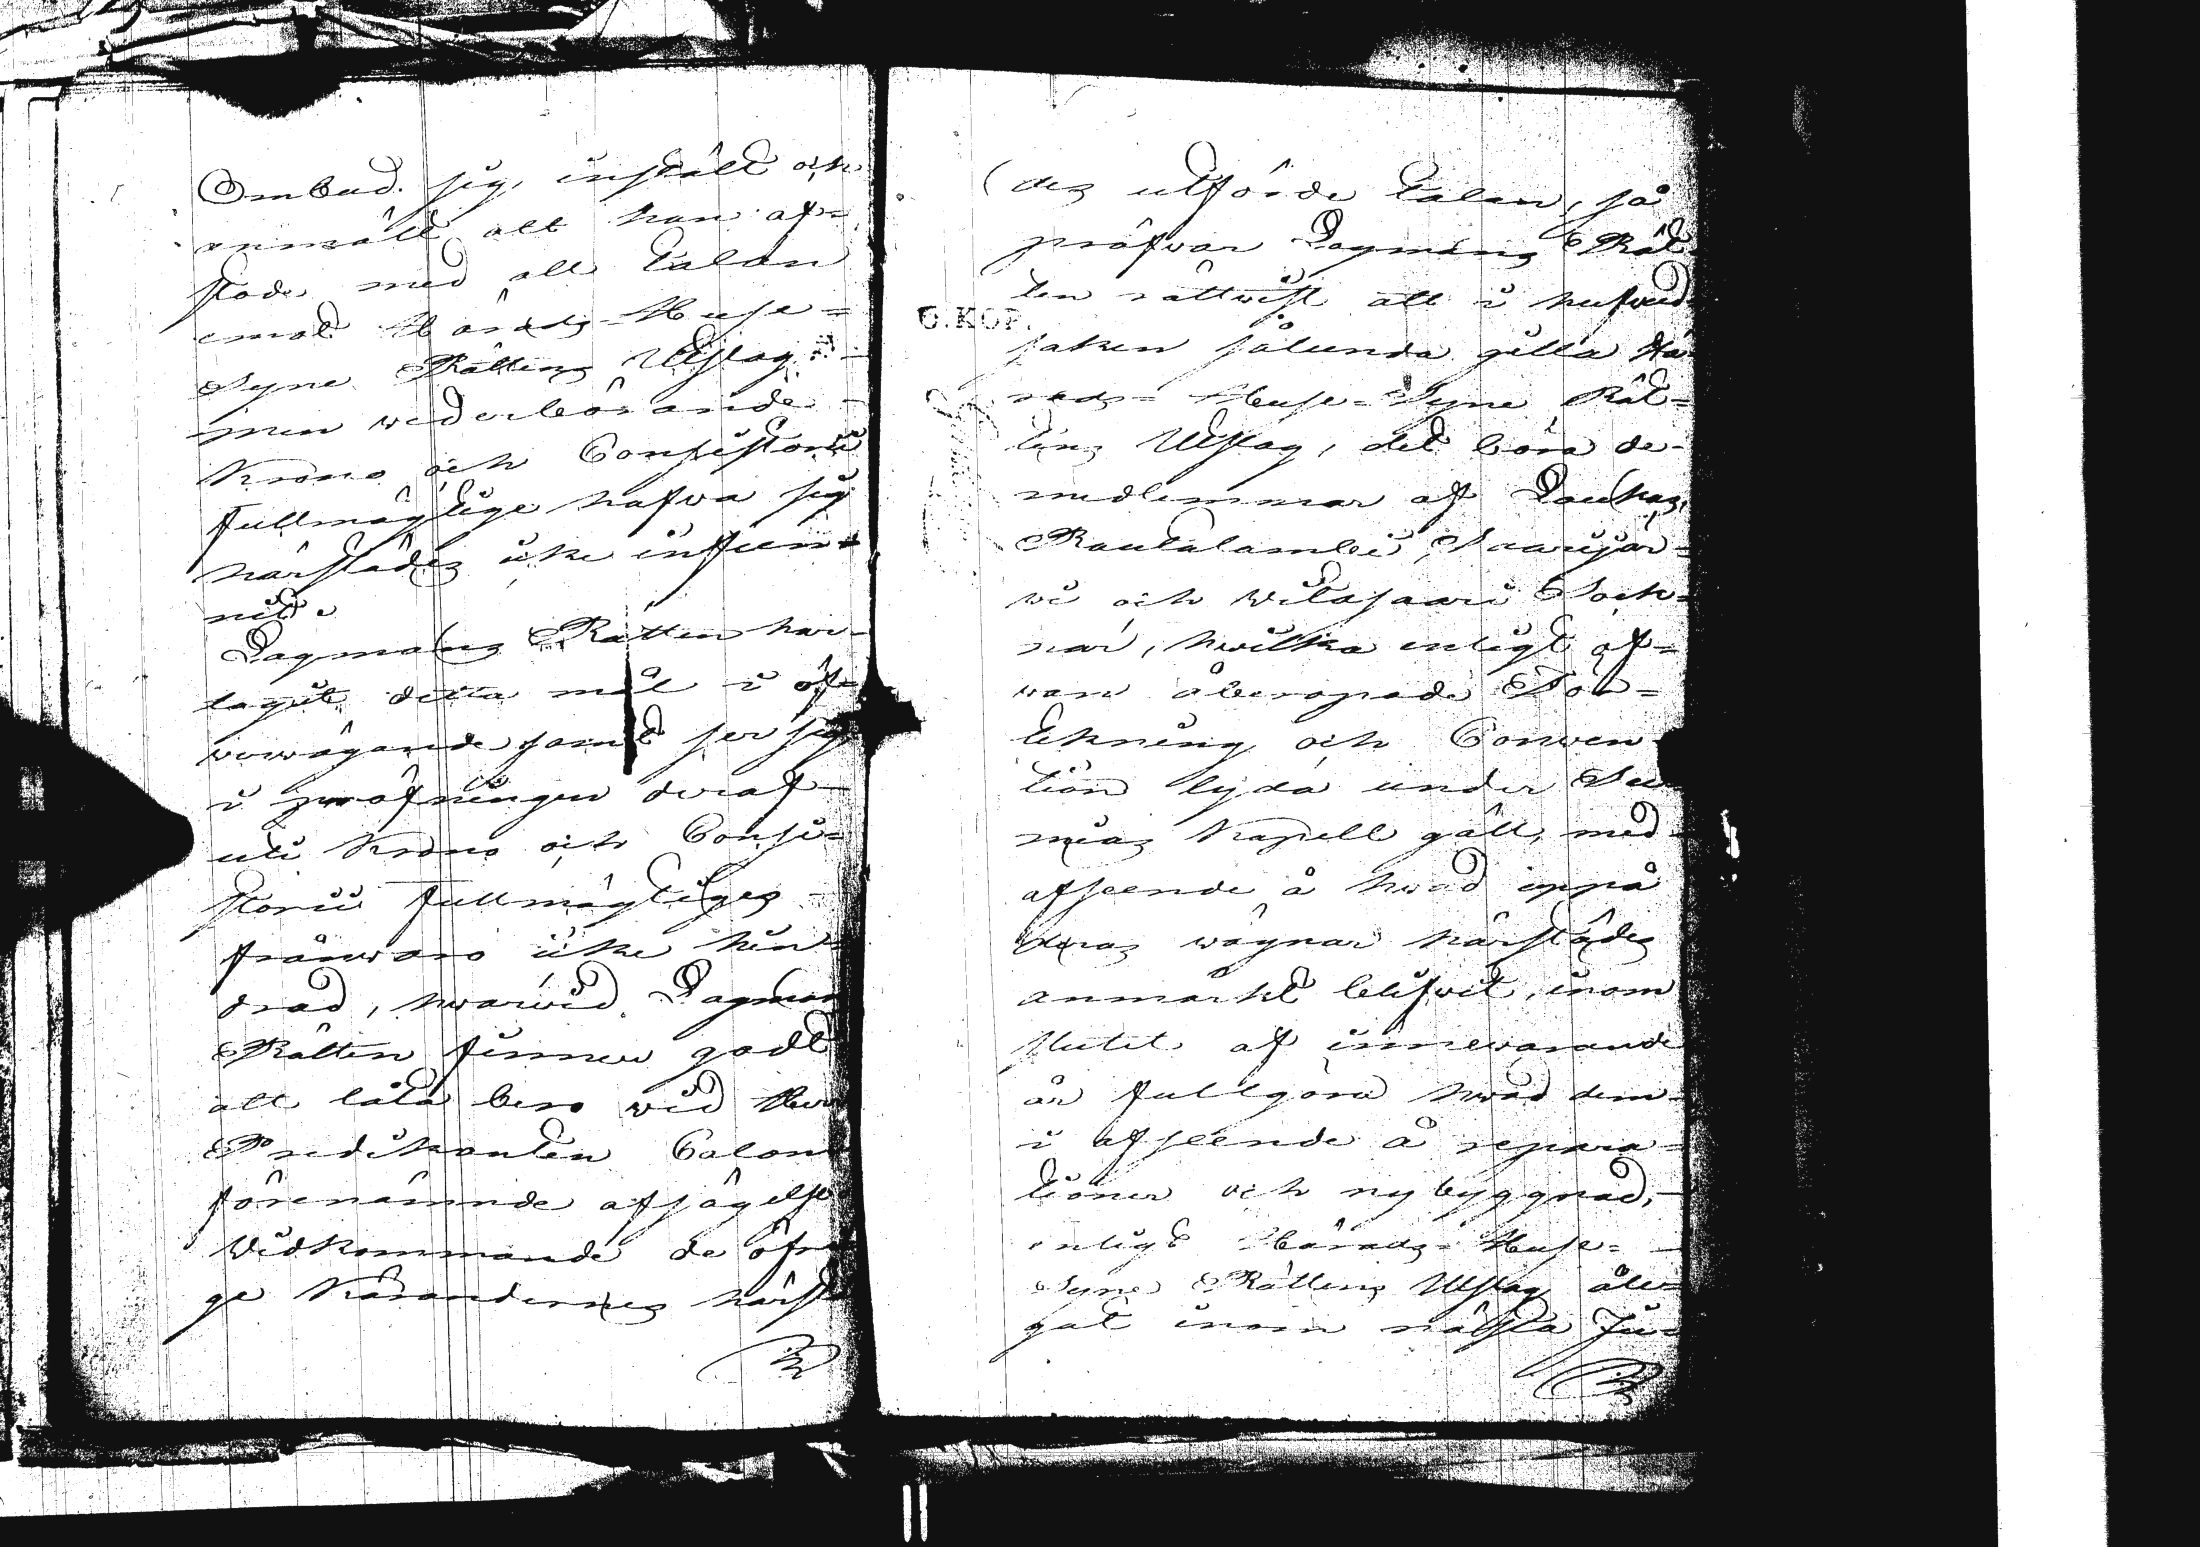 Ombud sig instält och
anmält att han af=
stode med all talan
emot Härads-Huse=
Syne Rättens Utslag
men wederbörande
Krono och Consistorii
Fullmägtige hafva sig
härstädes icke infun=
nit.
Lagmans Rätten har
tagit detta mål i öf=
vervägande samt ser sig
i pröfningen deraf
uti Krono och Consi=
storii Fullmägtiges
frånvaro icke hin=
drad, hwarwid Lagmans
Rätten finner godt
att låta bero wid Herr
Predikanten Caloni
förenämnde afsägelse
Widkommande de öfri
ge Kärandernes härstä
des utförde talan, så
pröfvar Lagmans Rät
ten rättwist att i hufvud
saken sålunda gilla Hä
rads-Huse-Syne Rät=
tens Utslag, det böra de
medlemmar af Laukas,
Rautalambi, Saarijär=
wi och Witasaari Sock=
nar, hwilka enligt of=
wan åberopade För=
tekning och Conven
tion lyda under Su
mias Kapell gäll, med
afseende å hwad uppå
deras wägnar härstädes
anmärkt blifvit, inom
slutet af innewarande
år fullgöra hwad dem
i afseende å repara
tioner och nybyggnad,
enligt Härads-Huse=
Syne Rättens Utslag åle
gat inom nästa Ju
G.KOP.